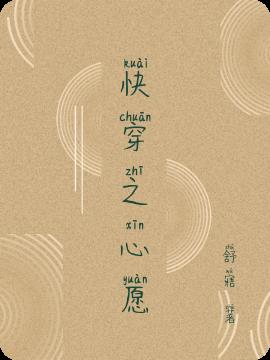 kuài
快
chuān
穿
zhī
之
xīn
心
yuàn
愿
shū
舒